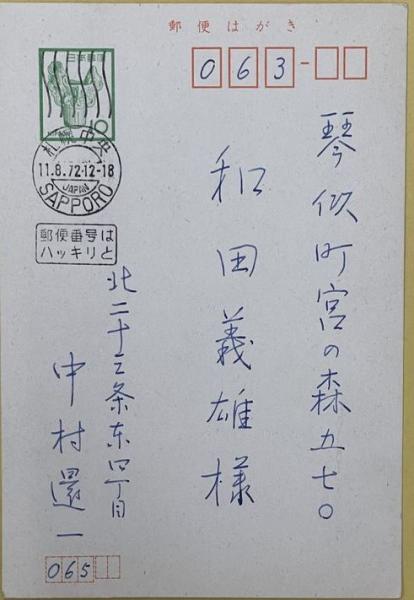 郵便はがき
日本郵便
10
063
札幌中央
11.8.72.12-18
JAPAN
SAPPORO
郵便番号は
ハッキリと
琴似町宮の森五七〇
和田義雄様
北二十三条東四丁目
中村還一
065